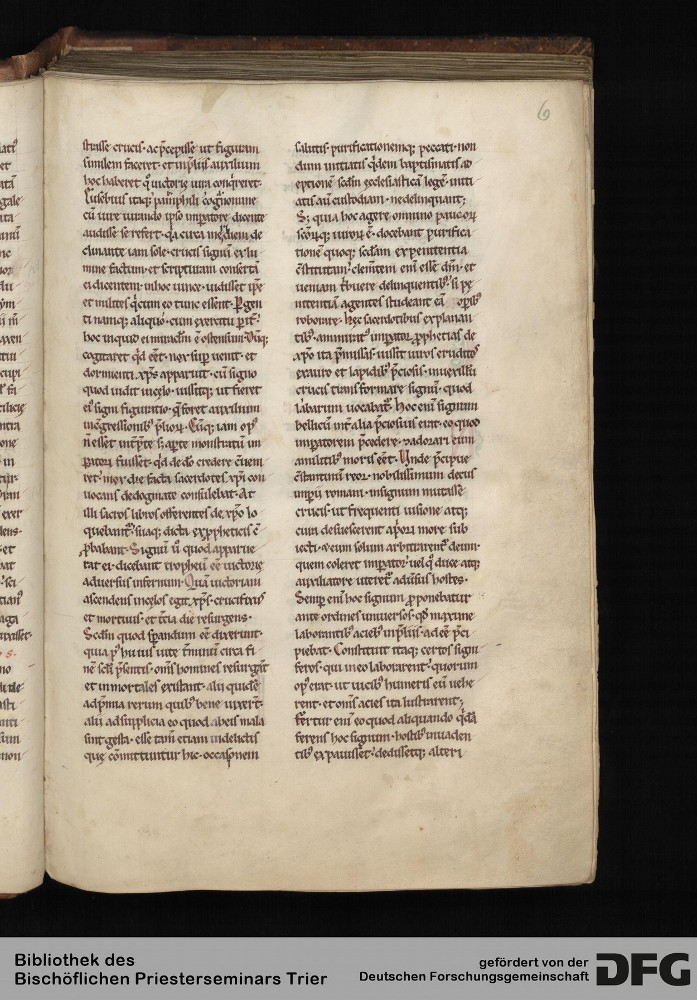 6
strasse crucis· ac p̄cepisse ut figuram
similem faceret· et in p̄liis auxilium
hoc haberet q̊ uictorię iura conq̄reret·
Eusebius itaq; pamphili cognomine
cū iure iurando ipso impatore dicente
audisse se refert· qđ circa meridiem de
clinante iam sole· crucis signū ex lu
mine factum· et scripturam consertā
ei dicentem· in hoc uince· uidisset ipse
et milites qui cum eo tunc essent· Pgen
ti namq; aliquo cum exercitu
hoc inquid ei miraculum ē ostensum· Dūq;
cogitaret qđ eēt· nox sup uenit· et
dormienti xp̄s apparuit· cū signo
quod uidit in cęlo· iussitq; ut fieret
ei signi figuratio· q̄ foret auxilium
in congressionibus p̄liorum· Cūq; iam op
n̄ esset int̄p̄te s; aperte monstratū im
patori fuisset· qđ de dō credere
ret· mox die facta sacerdotes xp̄i con
uocans de dogmate consulebat· At
illi sacros libros offerentes de xp̄o lo
quebant· suaq; dicta ex p̄pheticis
p̱babant· Signū ū quod apparue
rat ei· dicebant tropheū eē uictorię
aduersus infernum· Quā uictoriam
ascendens in cęlos egit xp̄s· crucifixus
et mortuus· et t̄cia die resurgens·
Sc̄dm quod sp̱andum eē dixerunt·
quia p hui uite t̄minū circa fi
nē sc̄li p̄sentis· om̄s homines resurgūt
et inmortales existant· alii quidē
ad p̄mia rerum quib; bene uixert·
alii ad supplicia eo quod ab eis mala
sint gesta· esse tam̄ etiam in delictis
quę cōmittuntur hic· occasionem
salutis· purificationemq; peccati· non
dum initiatis qđem baptismatis ad
eptionē sc̄dm ęcclesiasticā legē· initi
atis aū custodiam· ne delinquant;
S; quia hoc agere omnino paucorū
sc̄orūq; uirorū ē· docebant purifica
tionē quoq; sc̄dam ex penitentia
c̄stitutam· clem̄tem eni esse dm̄· et
ueniam t̄buere delinquentib; si pe
nitentiā agentes studeant eā opib;
roborare· Hęc sacerdotibus explanan
tib; ammirat imperator p̱phetias de
xp̄o ita p̄missas· iussit uiros eruditos
ex auro et lapidib; p̄ciosis· in uexillū
crucis transformare signū· quod
labarum uocabat· Hoc eni signum
bellicū int̄ alia p̄ciosius erat· eo quod
imperatorem p̄cedere· & adorari eum
a militib; moris eēt· Unde p̄cipue
c̄stantinū reor· nobilissimum decus
imperii romani· in signum mutasse
crucis· ut frequenti uisione atq;
cura desuescerent a priori more sub
iecti· & eum solum arbitrarent deum·
quem coleret imperator· uel q̊ duce atq;
auxiliatore uteret aduersus hostes·
Semp eni hoc signum p̱ponebatur
ante ordines uniuersos· qđ maxime
laborantib; acieb; in p̄liis· adeē p̄ci
piebat· Constituit itaq; certos signi
feros· qui in eo laborarent· quorum
op erat· ut uicib; humeris eū uehe
rent· et om̄s acies ita lustrarent;
Fertur eni eo quod aliquando qđā
ferens hoc signum· hostib; inuaden
tib; expauisset· dedissetq; alteri
Bibliothek des
Bischöflichen Priesterseminars Trier
gefördert von der
Deutschen Forschungsgemeinschaft
DFG